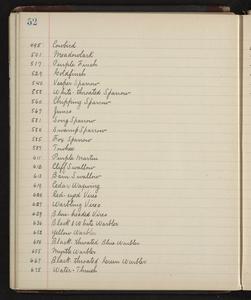 52
495 Cowbird
501 Meadowlark
517 Purple Finch
529 Goldfinch
540 Vesper Sparrow
558 White-throated Sparrow
560 Chipping Sparrow
567 Junco
581 Song Sparrow
584 Swamp Sparrow
585 Fox Sparrow
587 Towhee
611 Purple Martin
612 Cliff Swallow
613 Barn Swallow
619 Cedar Waxwing
624 Red-eyed Vireo
627 Warbling Vireo
629 Blue-headed Vireo
636 Black & White Warbler
652 Yellow Warbler
654 Black throated Blue Warbler
655 Myrtle Warbler
667 Black throated Green Warbler
675 Water-Thrush